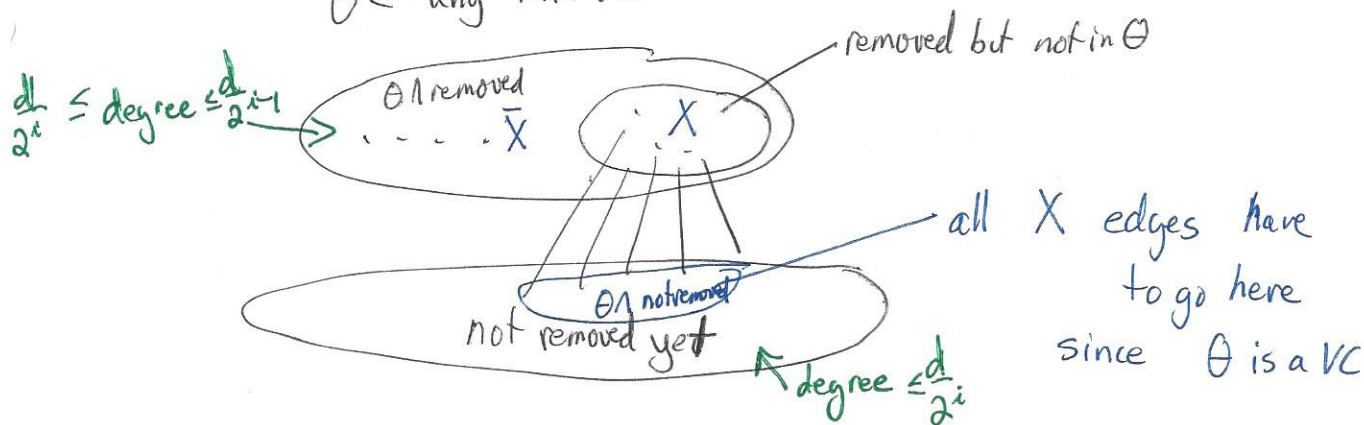 θ any
removed but not in θ
θ ∧ removed
d/2^i ≤ degree ≤ d/2^{i-1}
X̄
X
all X edges have
to go here
since θ is a VC
θ ∧ not removed
not removed yet
degree ≤ d/2^i